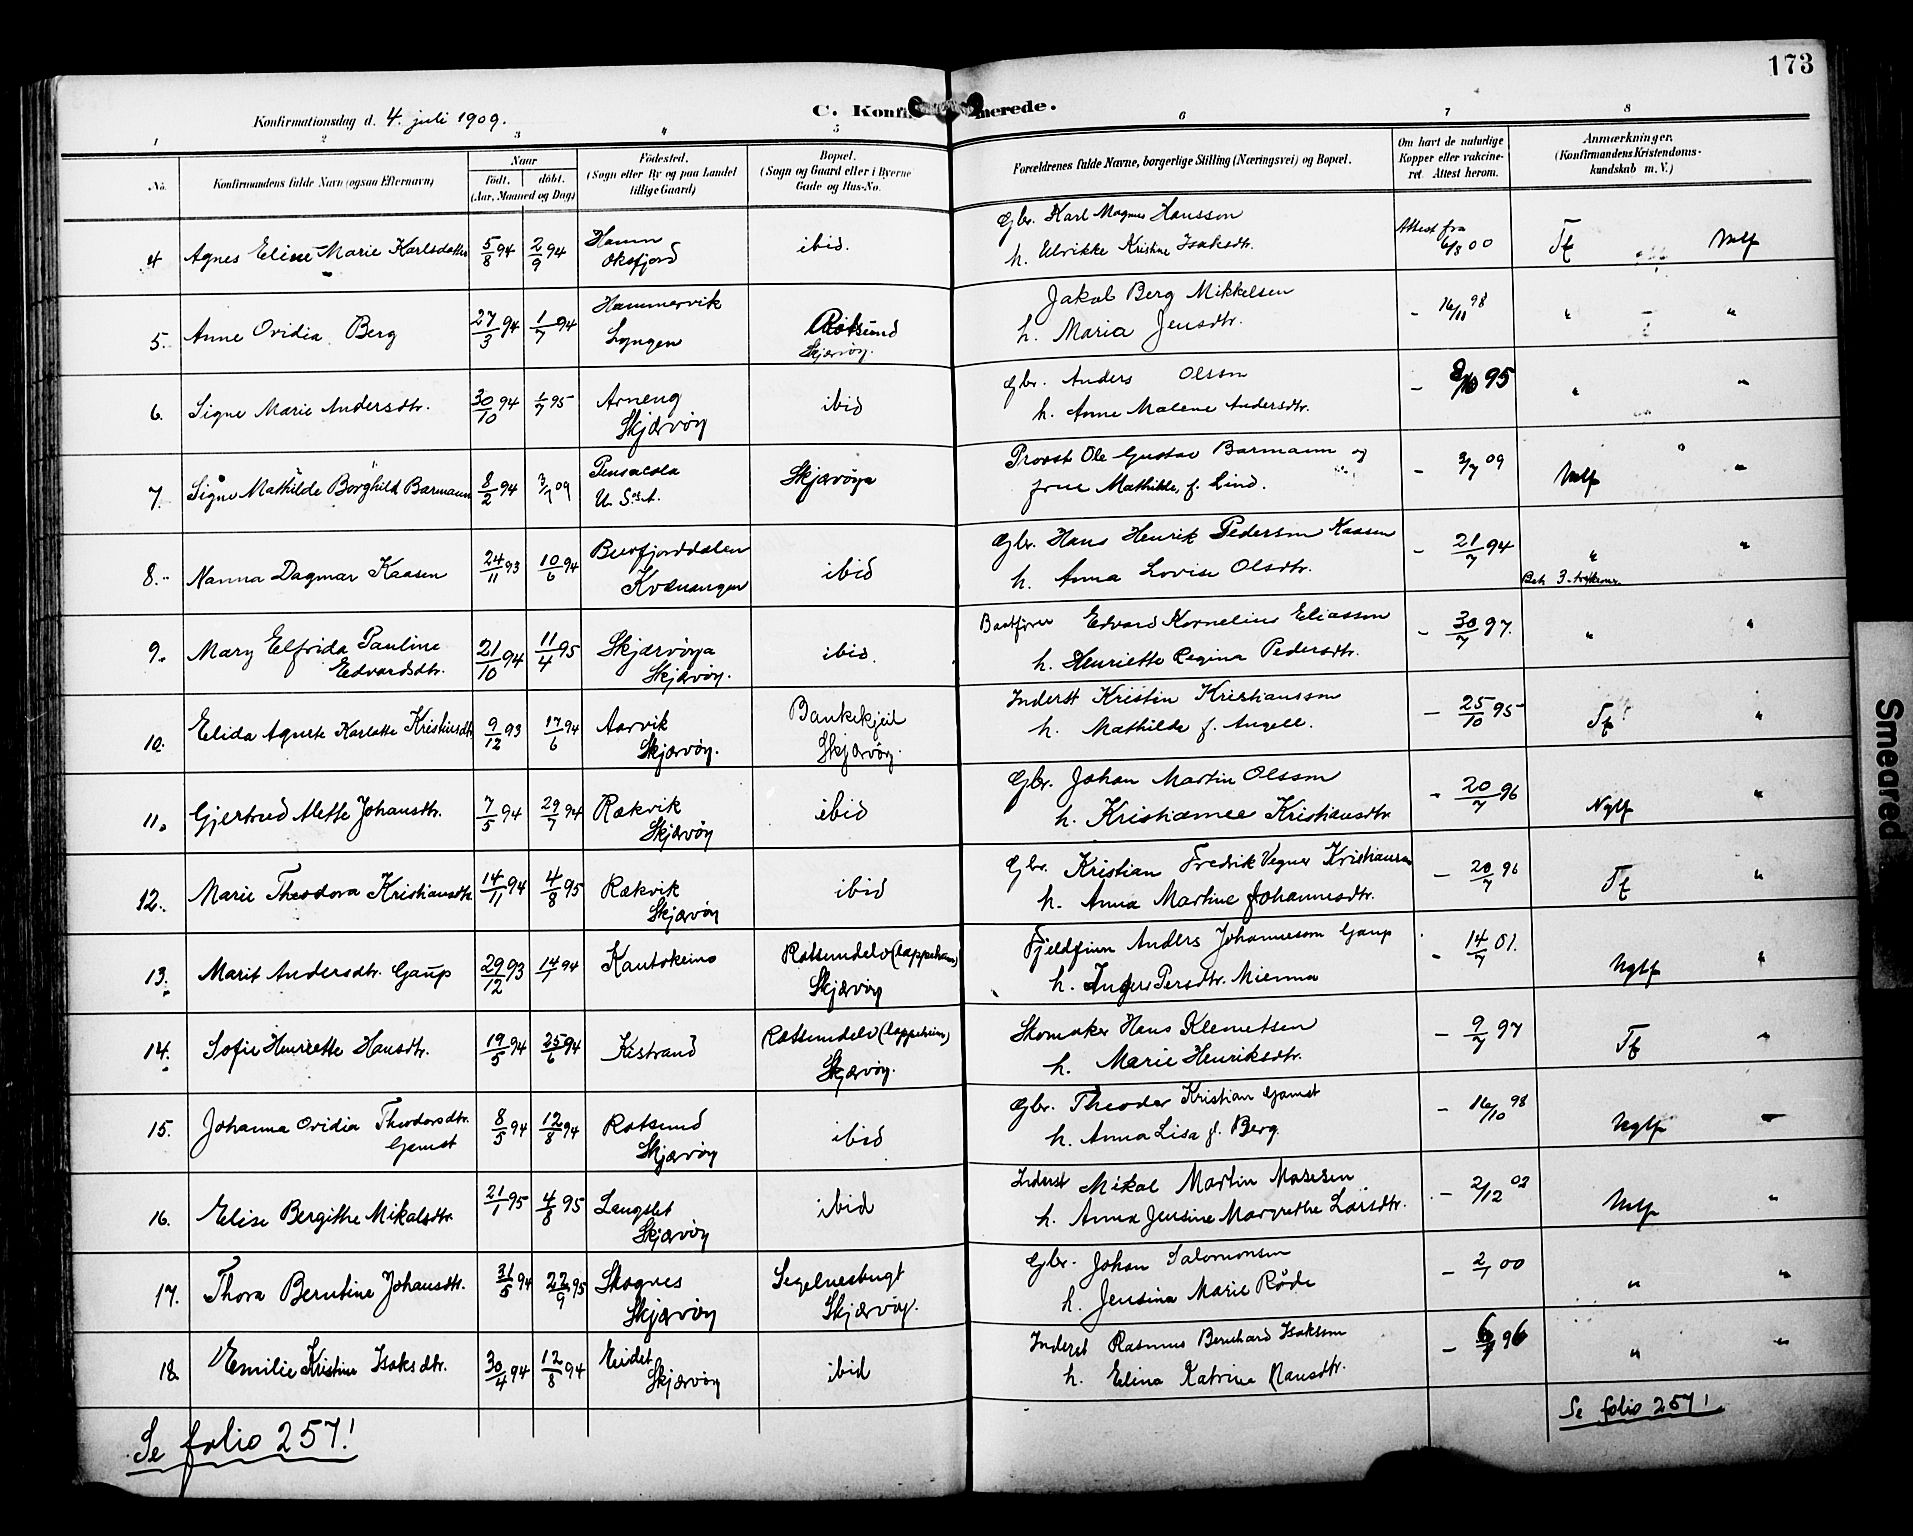 173
C. Konfirmerede.
Konfirmationsdag d. 4. juli 1909.
1 2 3 4 5 6 7 8
No.
Konfirmandens fulde Navn (ogsaa Efternavn)
Naar
født. døbt.
(Aar, Maaned og Dag)
Fødested.
(Sogn eller By og paa Landet
tillige Gaard)
Bopæl.
(Sogn og Gaard eller i Byerne
Gade og Hus-No.
Forældrenes fulde Navne, borgerlige Stilling (Næringsvei) og Bopæl.
Om havt de naturlige
Kopper eller vakcine-
ret. Attest herom.
Anmærkninger.
(Konfirmandens Kristendoms-
kundskab m. V.)
4 Agnes Eline Marie Karlsdatter 5/8 94 2/9 94 Hamn
Oksfjord
ibid.
Gbr. Karl Magnus Hansson
h. Ulrikke Kristine Isaksdtr.
Attest fra
6/3 00
Tf Mlf
5. Anne Ovidia Berg 27/3 94 1/7 94 Hammervik
Lyngen
Rotsund
Skjervøy.
Jakob Berg Mikkelsen
h. Maria Jensdtr.
- 16/11 98 " "
6. Signe Marie Andersdtr. 30/10 94 1/7 95 Arneng
Skjærvøy
ibid
Gbr. Anders Olsen
h. Anne Malene Andersdtr.
- 95 " "
7. Signe Mathilde Borghild Barmann 8/2 94 3/7 09 Pensacola
U. S. A.
Skjærvøya
Provst Ole Gustav Barmann og
frue Mathilde, f. Lind.
- 3/7 09 Mlf "
8. Nanna Dagmar Kaasen 24/11 93 10/6 94 Burfjorddalen
Kvænangen
ibid
Gbr. Hans Henrik Pedersen Kaasen
h. Anna Lovise Olsdtr.
- 21/7 94 " "
9. Mary Elfrida Pauline
Edvardsdtr.
21/10 94 11/4 95 Skjærvøya
Skjærvøy.
ibid.
Baatfører Edvard Kornelius Eliassen
h. Henriette Regina Pedersdtr.
- 30/7 97. " "
10. Elida Agnete Karlotte Kristinsdtr 9/12 93 17/6 94 Aarvik
Skjærvøy.
Bankekjeil
Skjærvøy.
Inderst Kristin Kristiansson
h. Mathilde f. Angell.
- 25/10 95 Tf "
11. Gjertrud Alette Johansdtr. 7/5 94 29/7 94 Rækvik
Skjærvøy
ibid
Gbr. Johan Martin Olsson
h. Kristianne Kristiansdtr
- 20/7 96 Nglf "
12. Marie Theodora Kristiansdtr 14/11 94 4/8 95 Rækvik
Skjærvøy
ibid
Gbr. Kristian Fredrik Vegner Kristiansen
h. Anna Martine Johannesdtr.
- 20/7 96 Tf "
13. Marit Andersdtr. Gaup 29/12 93 14/1 94 Kautokeino
Rotsundelv (lappeheim)
Skjærvøy
Fjeldfinn Anders Johannesson Gaup
h. Inger Persdtr. Mienna
- 14/7 01. Nglf "
14. Sofie Henriette Hansdtr. 19/5 94 25/6 94 Kistrand
Rotsundelv (lappeheim)
Skjærvøy.
Skomaker Hans Klemetsen
h. Marie Henriksdtr.
- 9/7 97 Tf "
15. Johanna Ovidia Theodorsdtr.
Gamst
8/5 94 12/8 94 Rotsund
Skjærvøy
ibid
Gbr. Theodor Kristian Gamst
h. Anna Lisa f. Berg
- 16/10 98 Nglf -
16. Elise Bergithe Mikalsdtr. 21/1 95 4/8 95 Langslet
Skjærvøy
ibid
Inderst Mikal Martin Mosesen
h. Anna Jensine Margrethe Larsdtr.
- 2/12 02 Mlf "
17. Thora Berntine Johansdtr. 31/5 94 22/9 95 Skognes
Skjærvøy
Segelnesbugt
Skjærvøy.
Gbr. Johan Salomonsen
h. Jensina Marie Røde
- 2/1 00 " "
18. Emilie Kristine Isaksdtr. 30/4 94 12/8 94 Eidet
Skjærvøy
ibid
Inderst Rasmus Bernhard Isaksen
h. Elina Katrine Hansdtr.
- 96 " "
Se folio 257!
Se folio 257!
Smeared